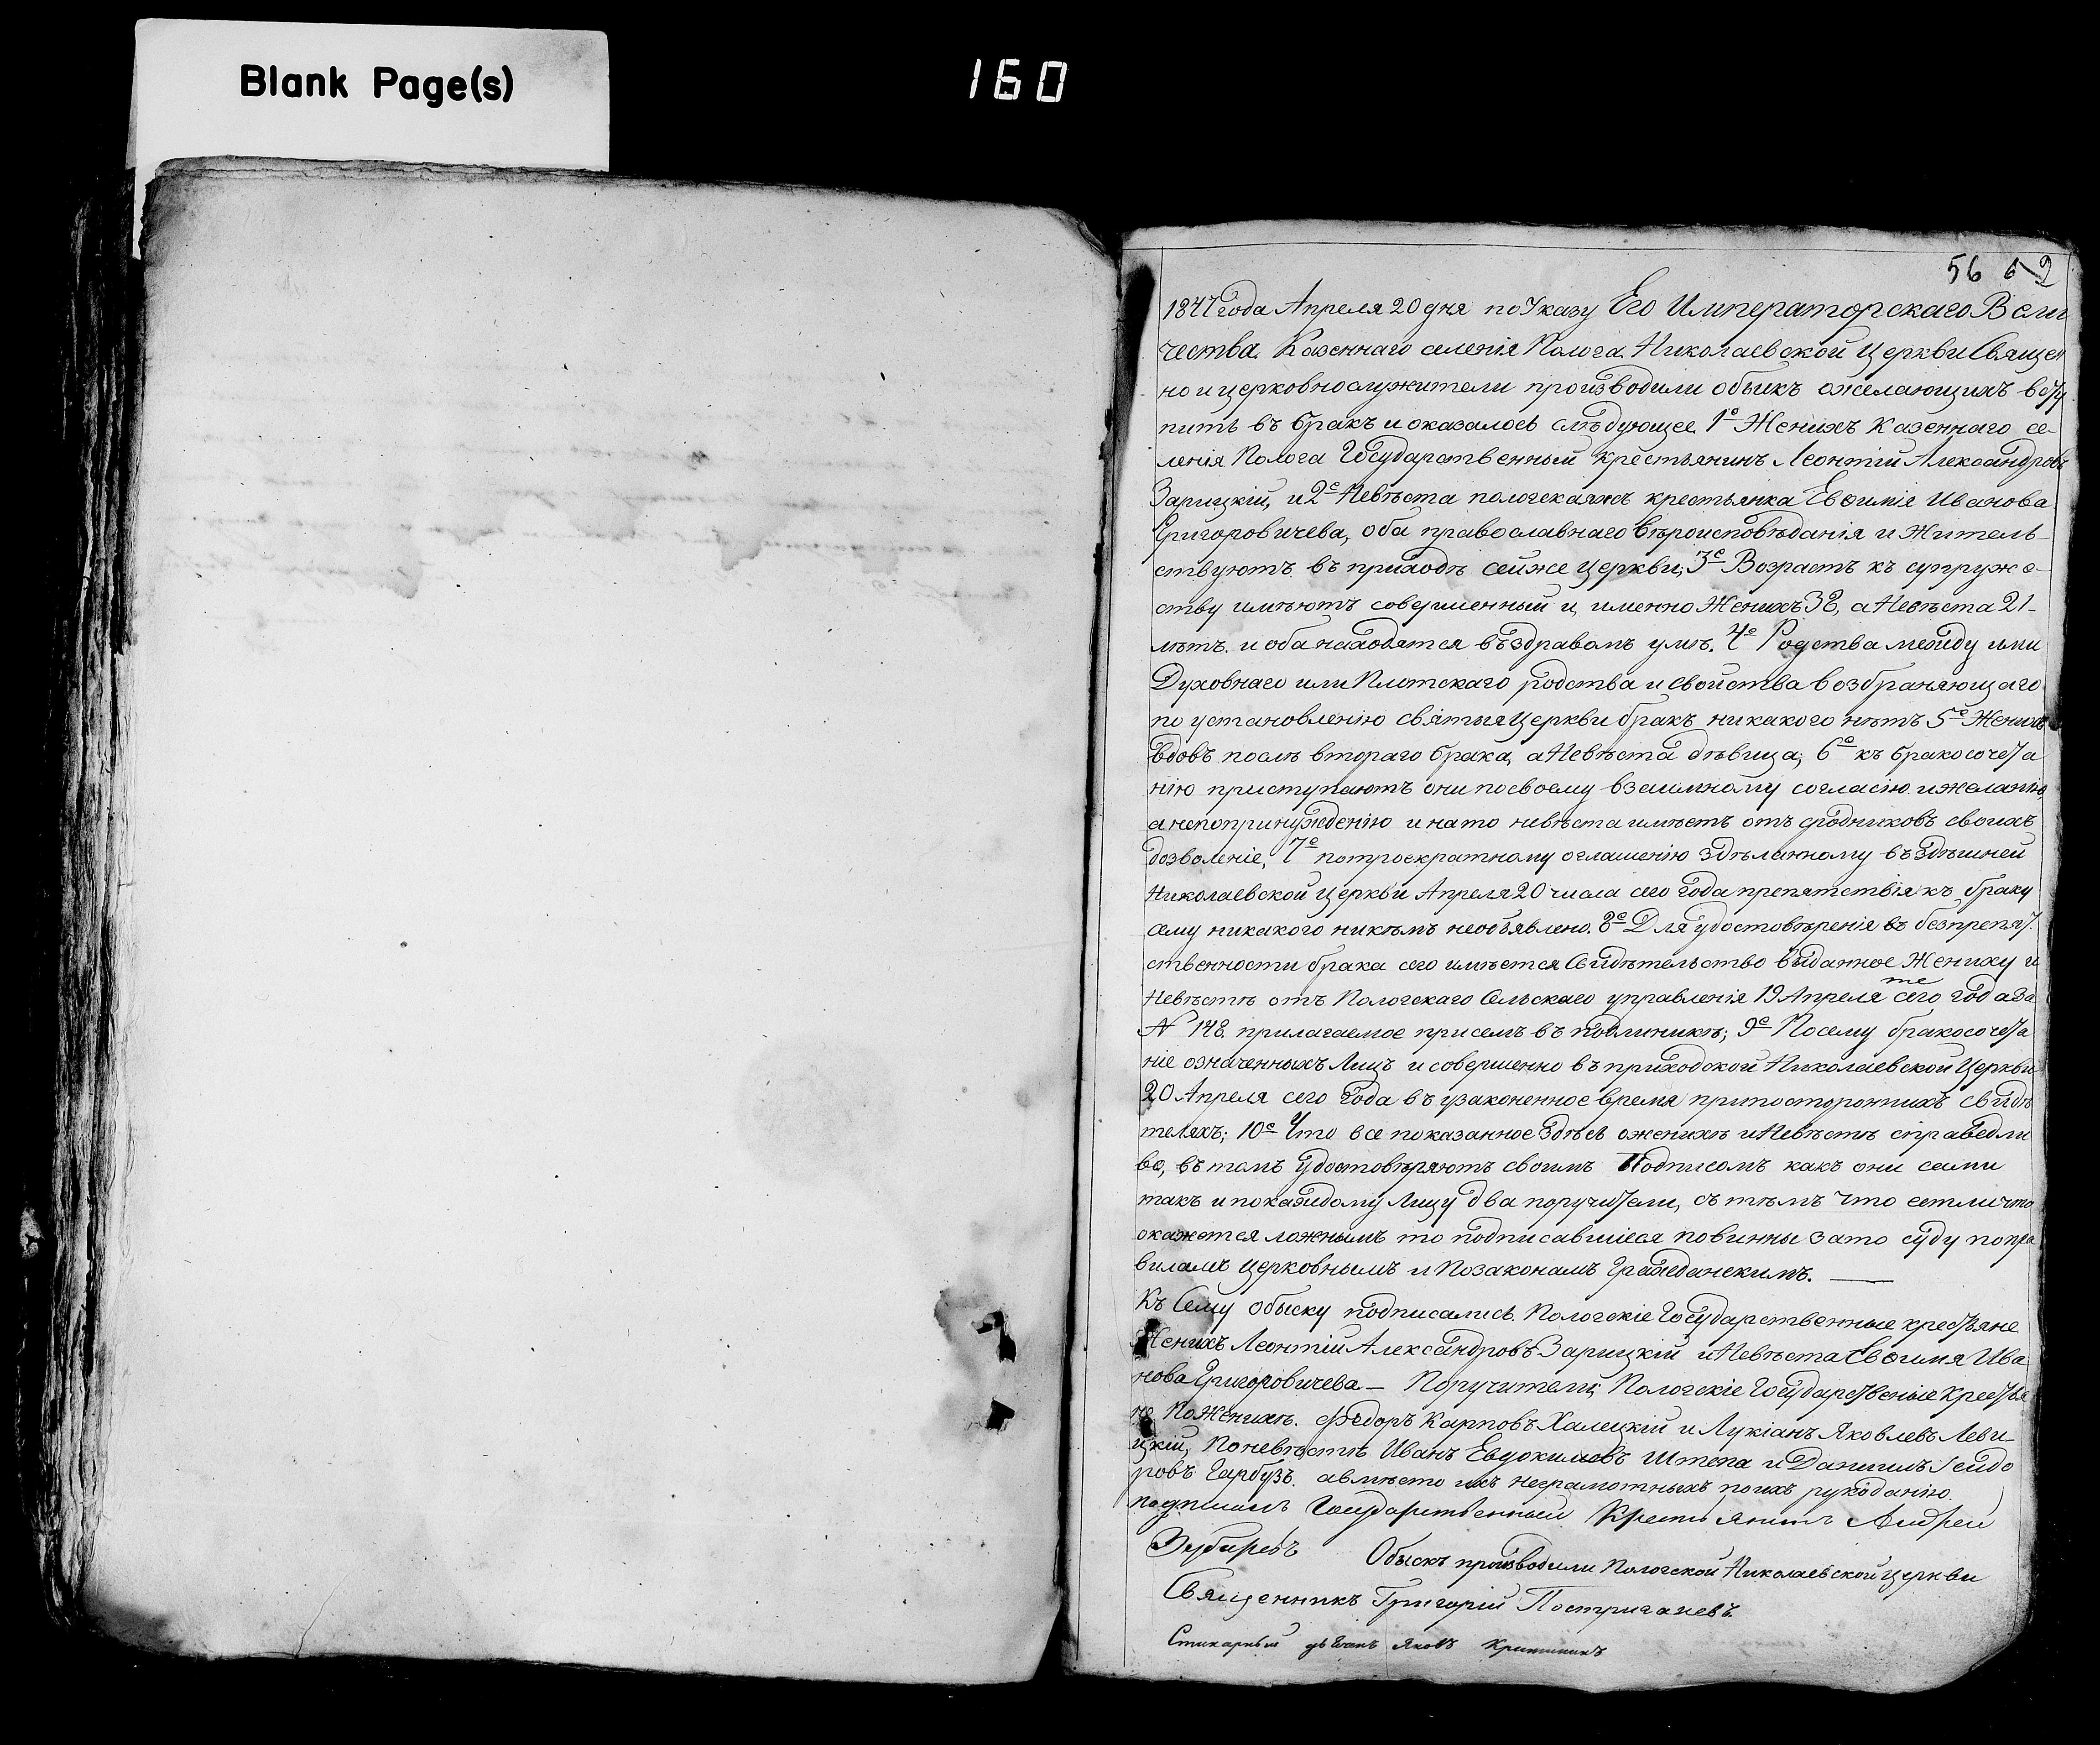 Blank Page(s)
160
56 6 2
1847 года Апреля 20 дня по Указу Его Императорскаго Вели
чества. Казеннаго селенія Полога Николаевской Церкви Священ
но и церковнослужители производили обыкъ ожелающихъ всту
пить въ бракъ и оказалось слѣдующее 1е Женихъ Казеннаго се-
ленія Полога Государственный крестьянинъ Леонтій Александровъ
Зарицкій, и 2е Невѣста пологскаяжъ крестьянка Евѳиміе Иванова
Григоровичева, оба православнаго вѣроисповѣданія и Житель-
ствуютъ въ приходѣ сейже Церкви; 3е Возрастъ къ супруже-
ству имѣютъ совершенный и именно Женихъ 38, а Невѣста 21-
лѣтъ. и оба находятся въ здравомъ умѣ. 4е Родства между ими
Духовнаго или Плотскаго родства и свойства возбраняющаго
по установленію святыя Церкви бракъ никакого нѣтъ 5е Женихъ
вдовъ послѣ втораго брака, а Невѣста дѣвица; 6е къ бракосочета
нію приступаютъ они посвоему взаимному согласію и желанію,
а непопринужденію и на то невѣста имѣетъ отъ сродниковъ своихъ
дозволеніе, 7е потроекратному оглашенію здѣланному въ здѣшней
Николаевской Церкви Апреля 20 числа сего года препятствія къ браку
сему никакого никѣмъ необъявлено. 8е Для удостовѣренія въ безпрепят
ственности брака сего имѣется Свидѣтельство выданное Жениху и
Невѣстѣ отъ Пологскаго Сельскаго управленія 19 Апреля сего года за
те
N 148 прилагаемое присемъ въ подлиникѣ; 9е Посему бракосочета
ніе означенныхъ Лицъ и совершенно въ приходской Николаевской Церкви
20 Апреля сего года въ узаконенное время припостороннихъ свидѣ
теляхъ; 10е Что все показанное здѣсь оженихѣ и Невѣстѣ справедли
во, въ томъ удостовѣряютъ своимъ Подписомъ какъ они сами
такъ и покаждому Лицу два поручители, съ тѣмъ что естли что
окажется ложнымъ то подписавшіеся повинны зато суду попра
виламъ церковнымъ и Позаконамъ Гражданскимъ.
Къ Сему обыску подписались. Пологскіе Государственные крестьяне
Женихъ Леонтій Александровъ Зарицкій и Невѣста Евѳимія Ива
нова Григоровичева - Поручители; Пологскіе Государственіе крестья
не По Женихѣ. Ѳедоръ Карповъ Халецкій и Лукіанъ Яковлевъ Леви-
цкій, Поневѣстѣ Иванъ Евдокимовъ Штепа и Даніилъ Ісидо
ровъ Гарбузъ. авмѣсто ихъ неграмотныхъ поихъ рукоданію
подписалъ Государственный Крестьянинъ Андрей
Обыскъ производили Пологской Николаевской церкви
Священникъ Григорій Постригачевъ
Стихарный дьячокъ Яковъ